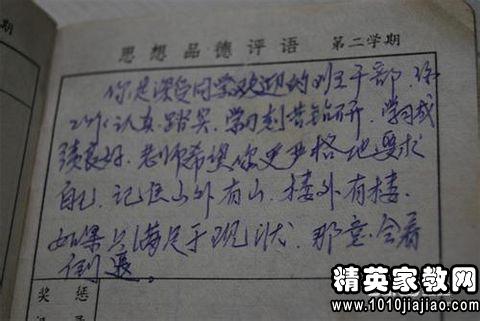 期
思想品德评语 第二学期
你是深受同学欢迎的班干部,你
工作认真踏实,学习刻苦钻研,学习成
绩良好。老师希望你更严格地要求
自己,记住山外有山,楼外有楼。
如果只满足于现状,那意味着
倒退。
奖惩
精英家教网
www.1010jiajiao.com